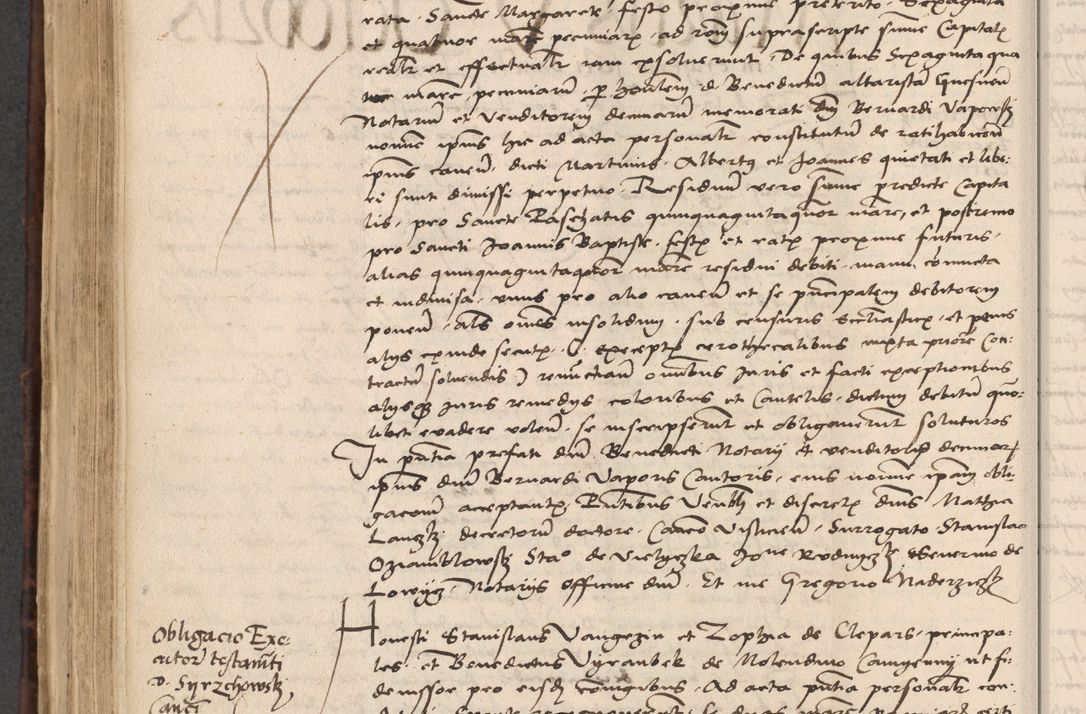 rata Sancte Margarete festo proxime preterito Sexaginta
et quatuor marc pecuniarum ad rom suprascripte sume Capitalis
realr et effectualr iam exsoluerunt, De quibus Sexaginta qua
tuor marc pecuniarum p honlem d. Benedictum altaristam
Notarium et Venditorem decimarum memorati dni Bernardi Vapowsky
nomine ipsius hic ad acta personalr constitutum de ratihabicione
ipsius cauen, dicti Martinus, Albertus et Joannes quietati et libe:
ri sunt dimissi perpetuo, Residuum vero sume predicte Capita
lis, pro Sancte Paschatis quinquaginta quor marc, et postremo
pro Sancti Joannis Baptiste festis et ratis proxime futuris,
alias quinquaginta quor marc residui debiti manu coniuncta
et indiuisa, vnus pro alio cauen et se principalem debitorem
ponen, als omes insolidum, sub censuris Ecclasticis, et penis
alijs exinde secutis, (excepta cerothecalibus iuxta priore Con:
tractum soluendis) renunctian omibus Juris et facti exceptionibus
alijsque Juris remedijs coloribus et Cautelis, dictum debitum quo:
libet euadere volen, se inscripserunt et obligauerunt soluturos
In pntia prefati dni Benedicti Notarij et venditoris decimar
ipsius dni Bernardi Vaporis Cantoris, eius nomine ipsam obli
gacionem acceptantis, Pntibus Venblr et discretis dnis, Mathia
decretorum doctore, Canco Vislicien, Surrogato Stanislao
Oziamblowsky Stao de Vielyczka Jone Seuerino de
Lowycz, Notarijs officine dni, Et me Gregorio Naderzicz
Obligacio Exe:
cutor testamti
D. Syrzchowsky
Canci
Honesti Stanislaus Vangezin et Zophia de Clepars, principa:
les, et Benedictus Vyrambek de Molendino ut fi:
deiussor pro eisdem coniugibus, Ad acta pntia personalr con: